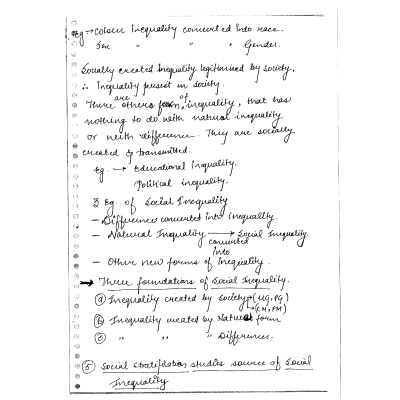 Eg → Colour Inequality converted into race.
Sex " " " Gender.
Socially created Inequality legitimised by society.
∴ Inequality present in society.
There are others form of inequality, that has
nothing to do with natural inequality
or neith difference. They are socially
created & transmitted.
Eg. → Educational Inequality.
Political inequality.
3 Eg. of Social Inequality
- Differences converted into inequality.
- Natural Inequality → converted into Social Inequality.
- Other new forms of Inequality.
→ Three foundations of Social Inequality.
(a) Inequality created by society → (UG, PG)
→ (CM, PM)
(b) Inequality created by Natural form
(c) " " " Differences.
(5) Social Stratification studies source of Social
Inequality